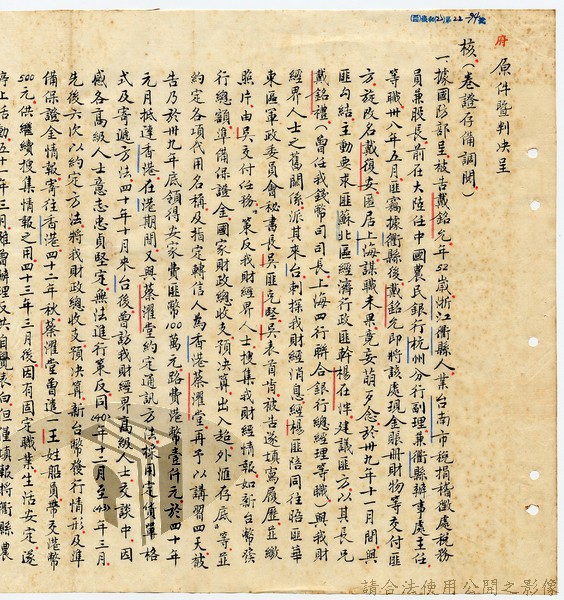 府
原件暨判決呈
核(卷證存備調閱)
一、據國防部呈被告戴銘允年52歲浙江衢縣人業台南市稅捐稽徵處稅務
員兼股長前在大陸任中國農民銀行杭州分行副理兼衢縣辦事處主任
等職卅八年五月匪竊據衢縣後戴銘允即將該處現金賬冊財物等交付匪
方旋改名戴復安匿居上海謀職未果竟妄萌歹念於卅九年十一月間與
匪勾結主動要求匪蘇北區經濟行政匪幹楊在泮建議匪方以其長兄
戴銘禮(曾任我錢幣司司長上海四行聯合銀行總經理等職)與我財
經界人士之舊關係派其來台刺探我財經消息經楊匪陪同往晤匪華
東區軍政委員會秘書長吳匪克堅吳表首肯被告遂填寫履歷並繳
照片由吳交付任務:策反我財經界人士搜集我財經情報如新台幣發
行總額準備保證金國家財政總收支預決算出入超外滙存底等並
約定各項代用名稱及指定轉信人為香港蔡濯堂再予以講習四天被
告乃於卅九年底領得安家費匪幣100萬元路費港幣壹仟元於四十年
元月抵達香港在港期間又與蔡濯堂約定通訊方法採用定貨單格
式及寄遞方法四十年十月來台後曾訪我財經界高級人士交談中因
感各高級人士意志忠貞堅定無法進行策反同(40)年十二月至(43)年三月
先後六次以約定方法將我財政總收支預決算新台幣發行情形及準
備保證金情報寄往香港四十二年秋蔡濯堂曾遣一王姓船員帶交港幣
500元供繼續搜集情報之用四十三年三月後因有固定職業生活安定遂
停止活動五十一年三月雖曾辦理反共自覺表白但僅項報將衢縣農
請合法使用公開之影像